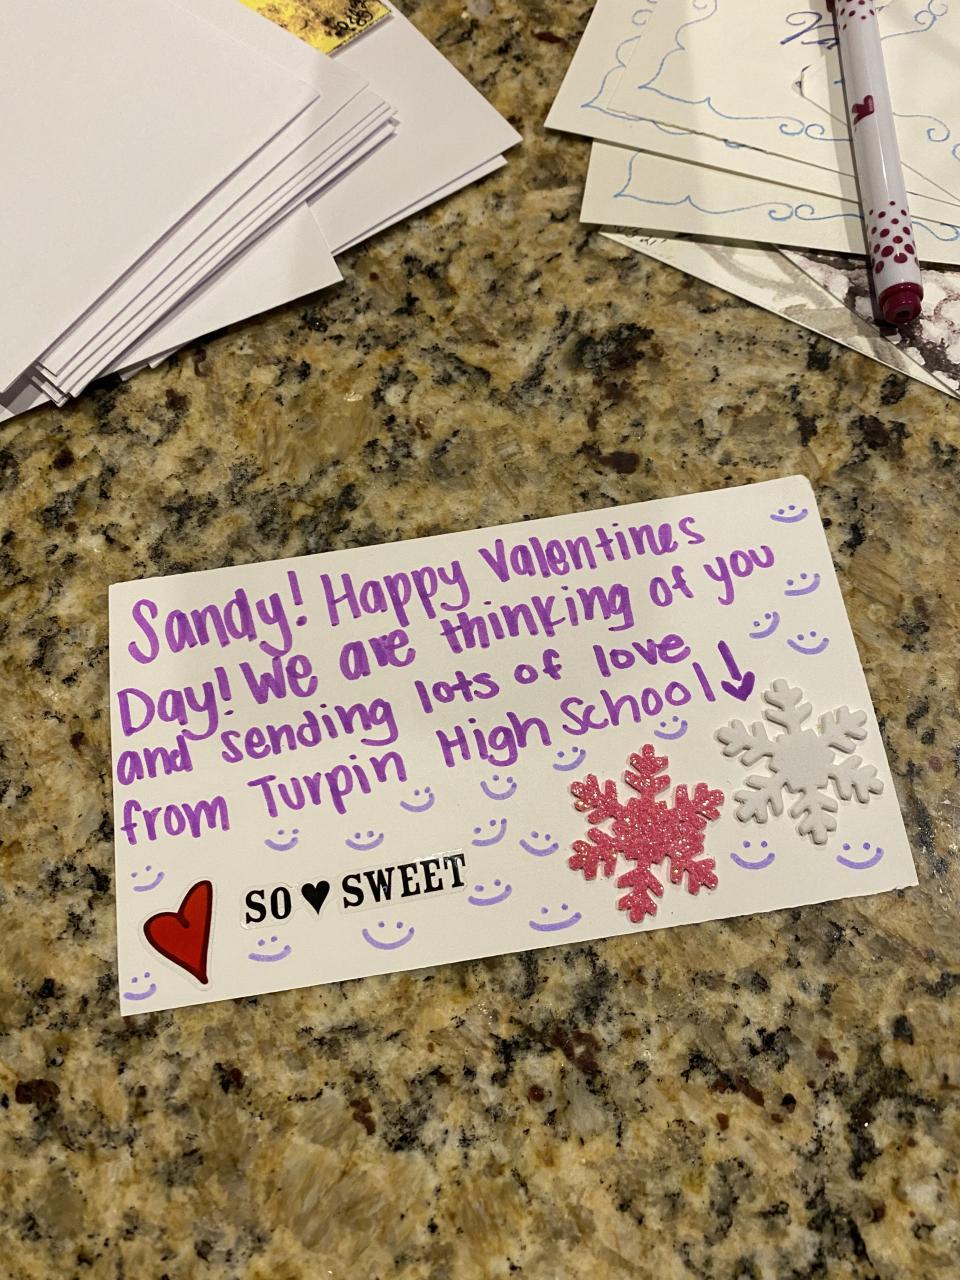 Sandy! Happy Valentines
Day! We are thinking of you
and sending lots of love
from Turpin High School
SO ♥ SWEET